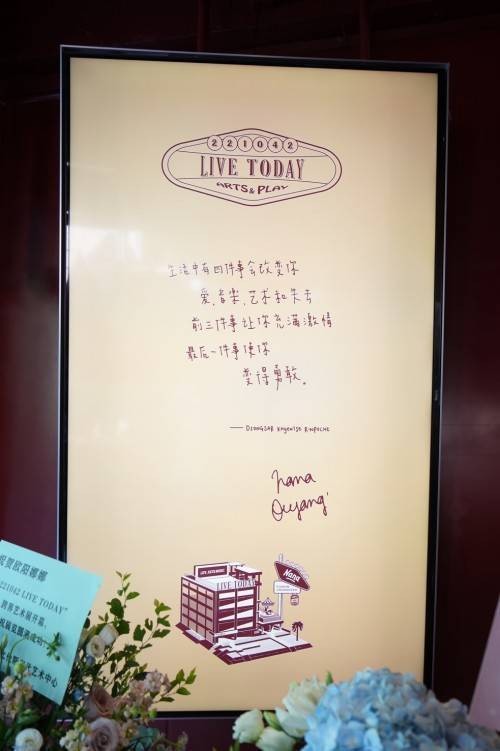 221042
LIVE TODAY
ARTS & PLAY
生活中有四件事会改变你
爱.音樂.艺术和失去
前三件事让你充满激情
最后一件事使你
變得勇敢。
— DZONGSAR KHYENTSE RINPOCHE
nana
Ouyang
LIVE TODAY
Nana
祝贺欧阳娜娜
"221042 LIVE TODAY"
跨界艺术展开幕,
祝展览圆满成功!
艺术中心